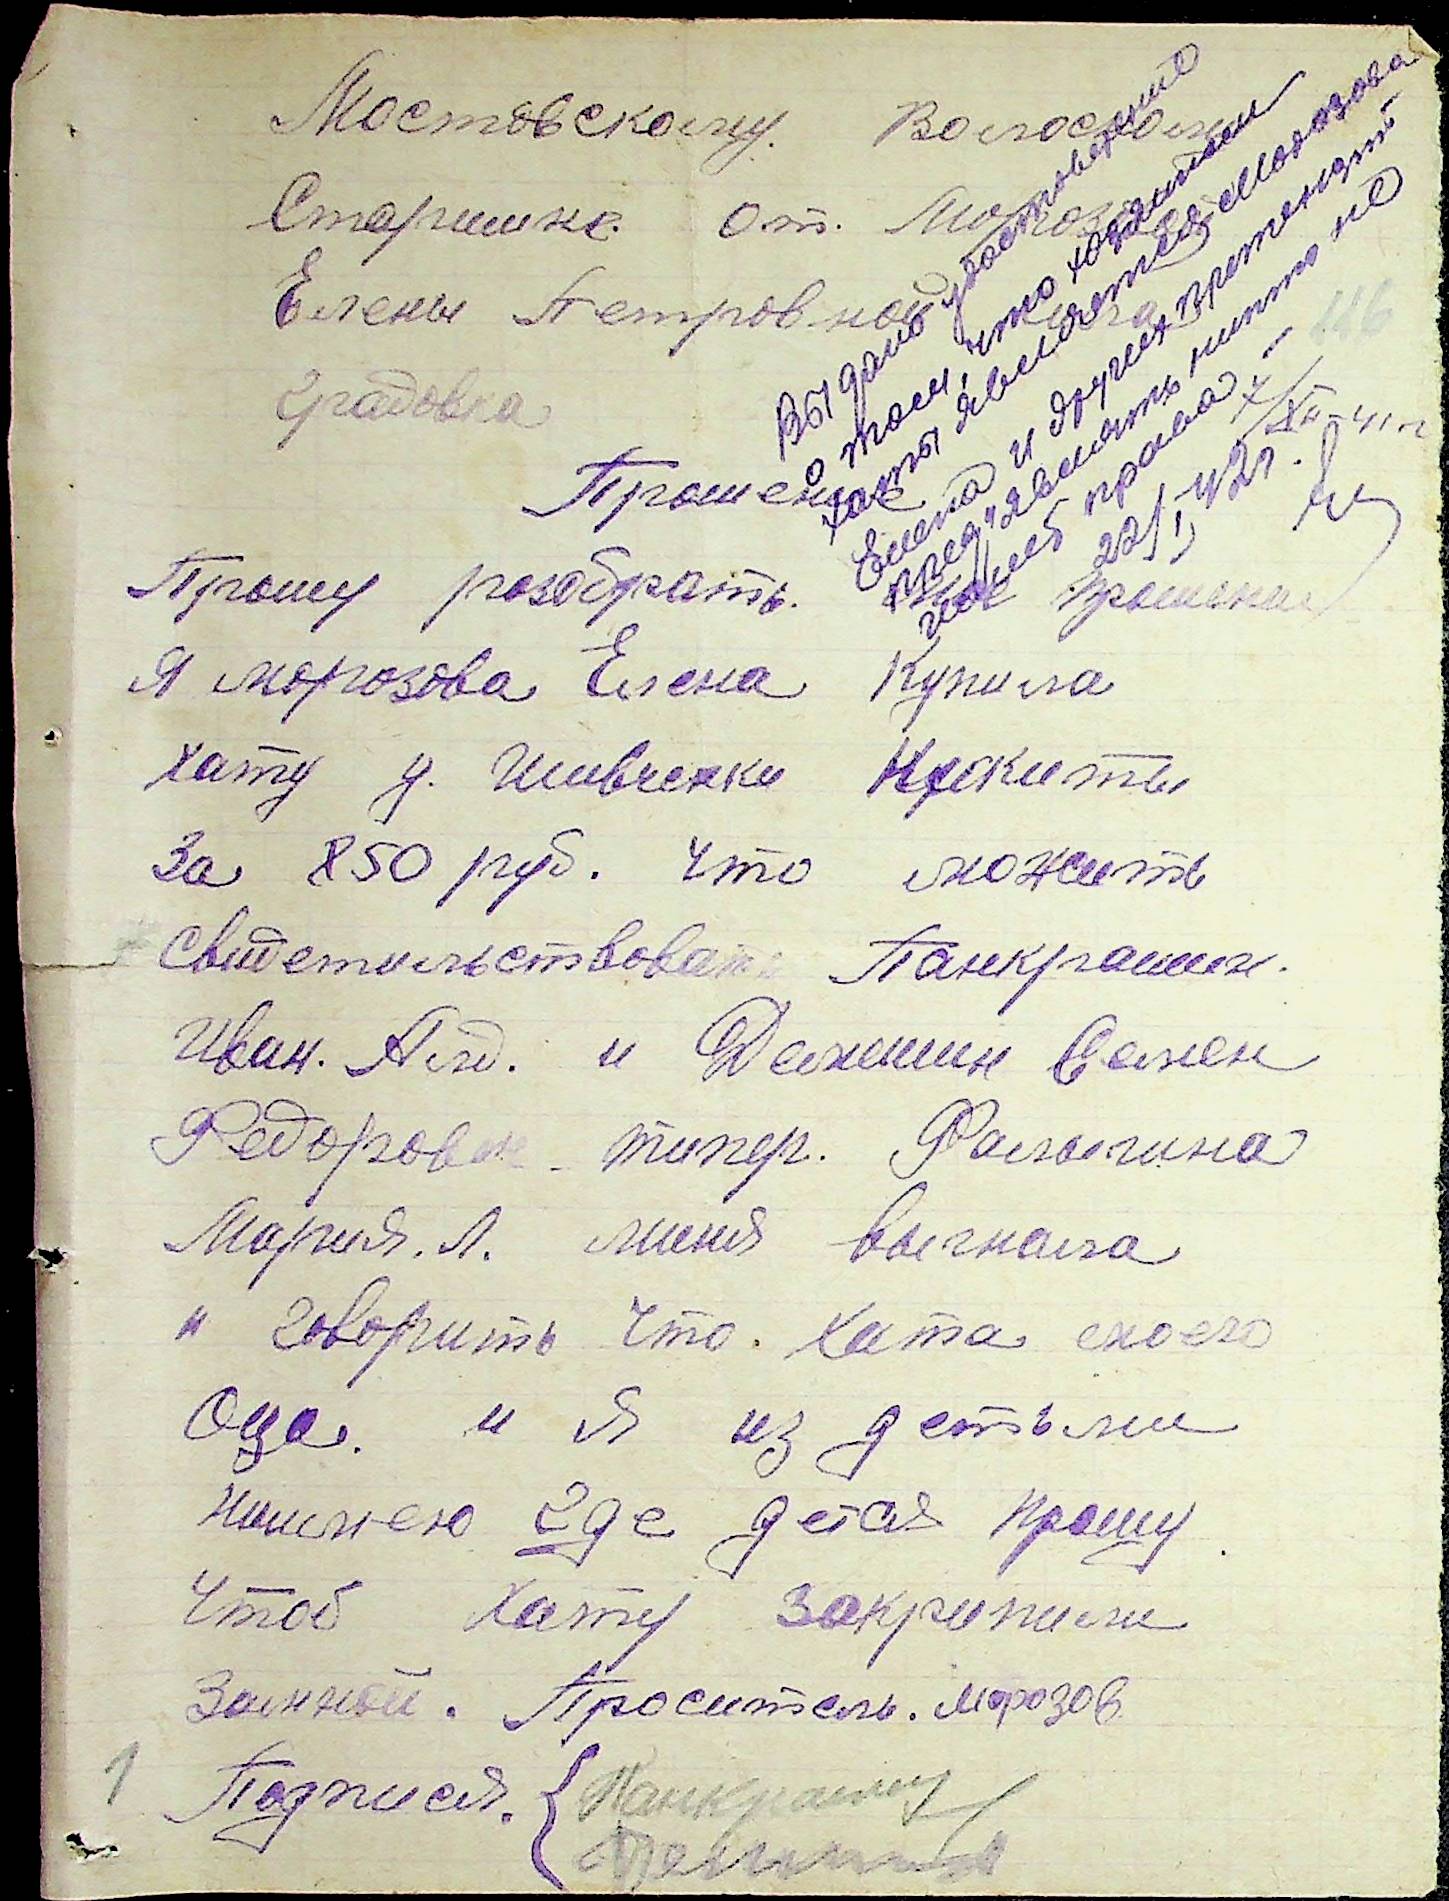 Мостовскому. Волоском
Старшине. от. Морозовой
Елены Петровной
градовка
116
Прошение
Прошу розобрать. мое Прошение
Я морозова Елена Купила
хату у. Шивченки Никиты
За 850 руб. что можить
Свидетильствовать Панкрашин.
Иван. Алд. и Данешин Семен
Федорович типер. Фалыгина
Мария. Л. миня выгнала
и говорить что. хата моего
Оца. и я из детьми
нимнею где детая прошу
чтоб хату закрипили
Замной. Проситель. Морозов
Подписи. { Панкрашин
1
Выдано удостоверение
о том, что хозяином
хаты является Морозова
Елена и других претензий
пред"являть никто не
имеет права –
7/XII-41 г
22/I 42 г.